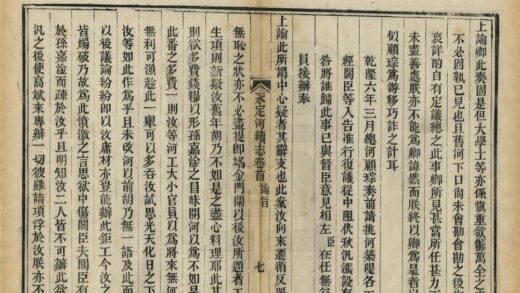 上諭卿此奏固是但大學士等亦係慎重欲籌萬全之
不必固執已見也且舊河下口尚未會勘會勘之後
衷詳酌自有定議總之此事卿所見甚當所任甚力
未盡善處朕亦不能為卿諱然而朕終以卿為是者
似顧琮為游移巧詐之計耳
乾隆六年三月總河顧琮奏前請挑河築隄各工
經閣臣等入告准行復議從中阻伏秋汎漲設有
咎將誰歸此事已與督臣意見相左臣在任無
員接辦奉
永定河續志卷首 諭旨 七
上諭此所謂中心疑者其辭支也此案汝向來遷
無恥之狀亦不必盡提即堵金門閘以後汝所題者
生項則新擬汝舊年胡乃不如是之盡心料理耶此其
則欲多費錢糧以形孫嘉淦之昧開河以為不如是
此番之多費一則汝等河工大小官員以為將來無河
無利可漁趁此一舉復可以多吞汝試思光天化日之下
汝等如此作為乎且未改河以前胡乃無一語及此而
以後議論紛紛即以汝庸材亦豈能辦此鉅工今汝之
皆燭破乃故為此憤激之言思欲中傷閣臣夫閣臣有
於孫嘉淦而疎於汝乎且明知汝二人皆不可辦此欲
汎之後使高斌來專辦一切彼雖請項浮於汝朕亦不